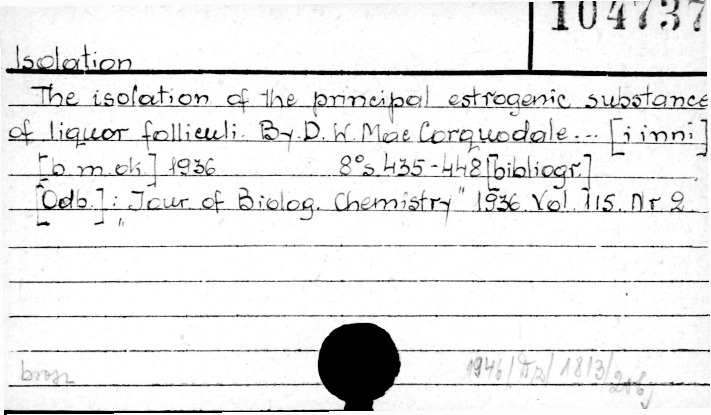 104737
Isolation
The isolation of the principal estrogenic substance
of liquor folliculi. By D. W. Mac Corquodale... [i inni]
[b. m. ok.] 1936 8° s. 435-448 [bibliogr.]
[Odb.]: "Jour. of Biolog. Chemistry" 1936. Vol. 115. Nr 2.
brosz
1946/Dr/1813/